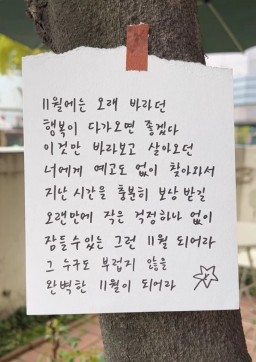 11월에는 오래 바라던
행복이 다가오면 좋겠다
이것만 바라보고 살아오던
너에게 예고도 없이 찾아와서
지난 시간을 충분히 보상받길
오랜만에 작은 걱정하나 없이
잠들수있는 그런 11월 되어라
그 누구도 부럽지 않을
완벽한 11월이 되어라